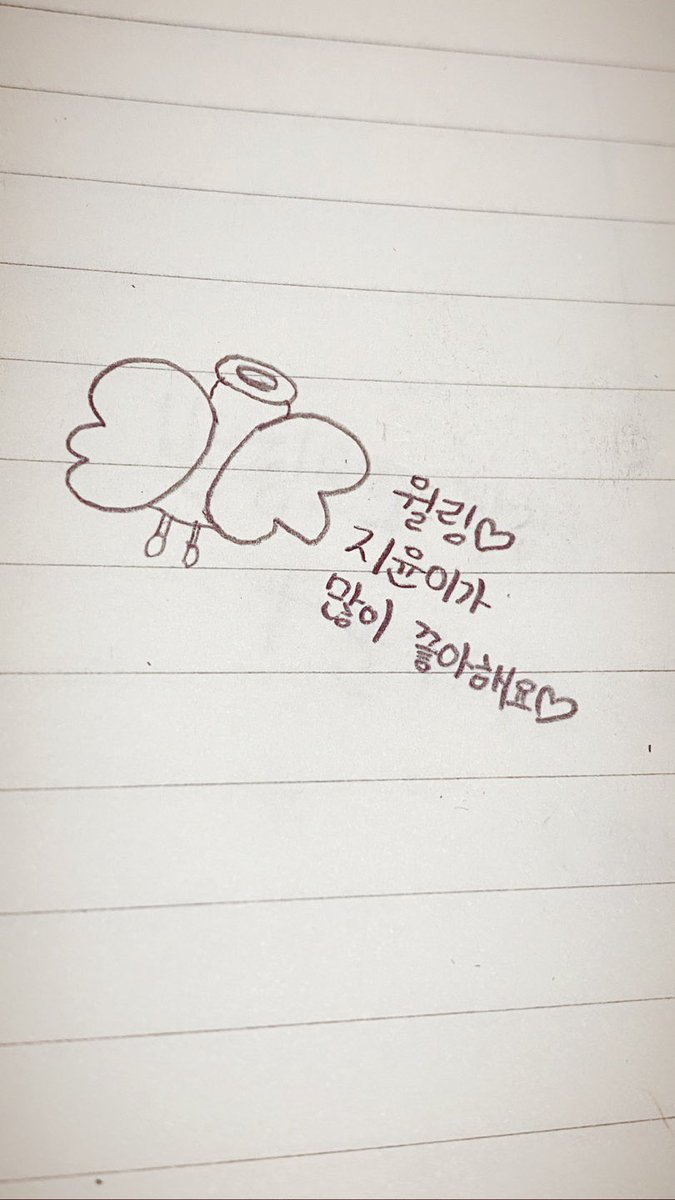 월링♡
지윤이가
많이 죻아해요♡